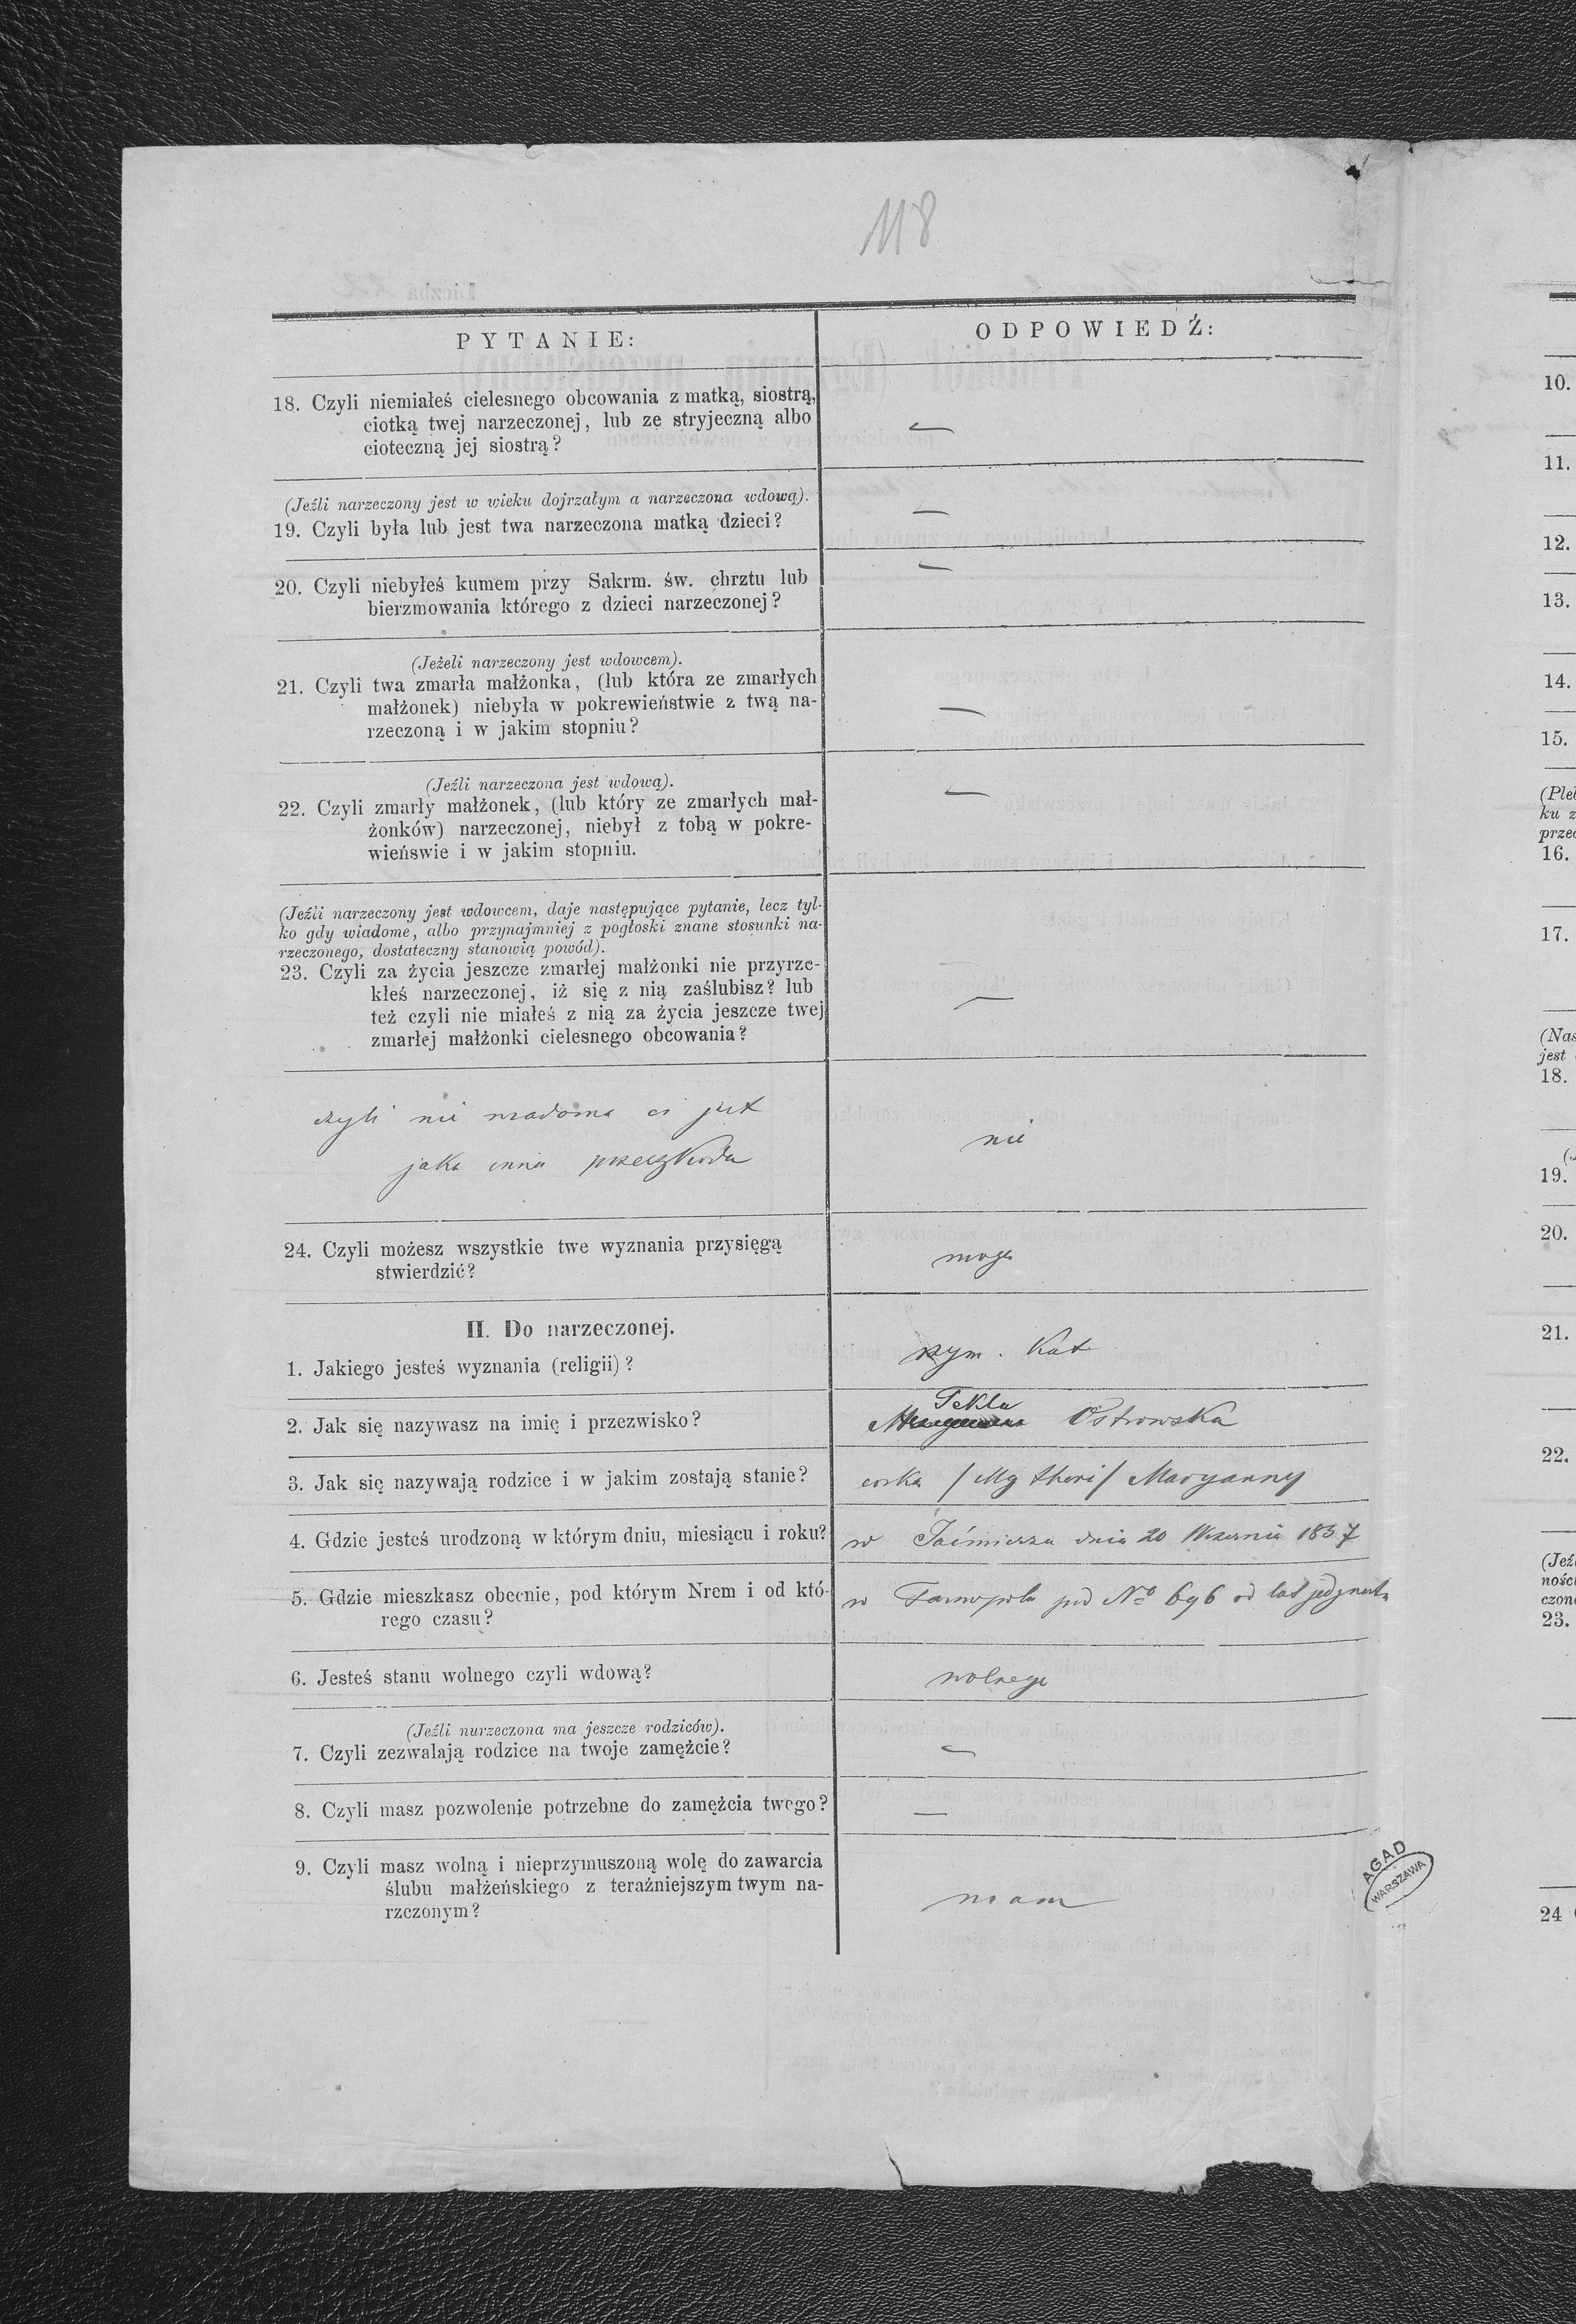 118
PYTANIE:
ODPOWIEDŹ:
18. Czyli niemiałeś cielesnego obcowania z matką, siostrą,
ciotką twej narzeczonej, lub ze stryjeczną albo
cioteczną jej siostrą?
—
(Jeźli narzeczony jest w wieku dojrzałym a narzeczona wdową).
19. Czyli była lub jest twa narzeczona matką dzieci?
—
20. Czyli niebyłeś kumem przy Sakrm. św. chrztu lub
bierzmowania którego z dzieci narzeczonej?
—
(Jeżeli narzeczony jest wdowcem).
21. Czyli twa zmarła małżonka, (lub która ze zmarłych
małżonek) niebyła w pokrewieństwie z twą na-
rzeczoną i w jakim stopniu?
—
(Jeźli narzeczona jest wdową).
22. Czyli zmarły małżonek, (lub który ze zmarłych mał-
żonków) narzeczonej, niebył z tobą w pokre-
wieńswie i w jakim stopniu.
—
(Jeźli narzeczony jest wdowcem, daje następujące pytanie, lecz tyl-
ko gdy wiadome, albo przynajmniej z pogłoski znane stosunki na-
rzeczonego, dostateczny stanowią powód).
23. Czyli za życia jeszcze zmarłej małżonki nie przyrze-
kłeś narzeczonej, iż się z nią zaślubisz? lub
też czyli nie miałeś z nią za życia jeszcze twej
zmarłej małżonki cielesnego obcowania?
—
czyli nie wiadoma ci jest
jaka inna przeszkoda
nie
24. Czyli możesz wszystkie twe wyznania przysięgą
stwierdzić?
mogę
II. Do narzeczonej.
1. Jakiego jesteś wyznania (religii)?
rzym. Kat
2. Jak się nazywasz na imię i przezwisko?
Tekla
Ostrowska
3. Jak się nazywają rodzice i w jakim zostają stanie?
corka / thori / Maryanny
4. Gdzie jesteś urodzoną w którym dniu, miesiącu i roku?
w Jaćmierzu dnia 20 Wrzesnia 1857
5. Gdzie mieszkasz obecnie, pod którym Nrem i od któ-
rego czasu?
w Tarnopolu pod No 696 od lat
6. Jesteś stanu wolnego czyli wdową?
wolnego
(Jeźli nurzeczona ma jeszcze rodziców).
7. Czyli zezwalają rodzice na twoje zamęźcie?
—
8. Czyli masz pozwolenie potrzebne do zamęźcia twego?
—
9. Czyli masz wolną i nieprzymuszoną wolę do zawarcia
ślubu małżeńskiego z teraźniejszym twym na-
rzczonym?
mam
AGAD
WARSZAWA
10.
11.
12.
13.
14.
15.
(Pleb
ku z
przed
16.
17.
(Nas
jest
18.
19.
20.
21.
22.
(Jeźl
ności
czone
23.
24